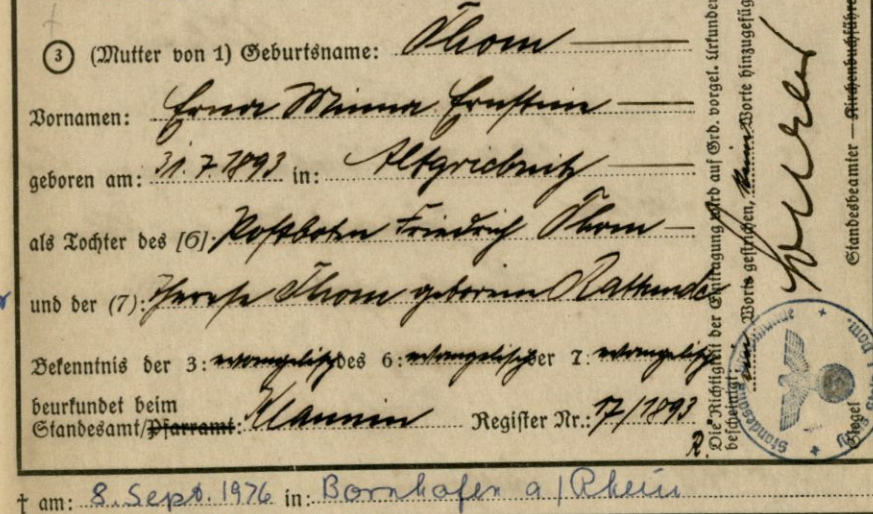 ③ (Mutter von 1) Geburtsname: Thom
Vornamen: Erna Minna Ernstein
geboren am: 31.7.1893 in: Altgriebnitz
als Tochter des [6]: Postboten Friedrich Thom
und der (7): Therese Thom geborene
Bekenntnis der 3: evangelisch des 6: evangelisch der 7: evangelisch
beurkundet beim
Standesamt/Pfarramt: Klannin Register Nr.: 17/1893
R.
† am: 8. Sept. 1976 in: Bornhofen a/Rhein
Die Richtigkeit der Eintragung wird auf Grd. vorgel. Urkunden
bescheinigt: Worte gestrichen, Worte hinzugefügt
Standesbeamter — Kirchenbuchführer
Siegel